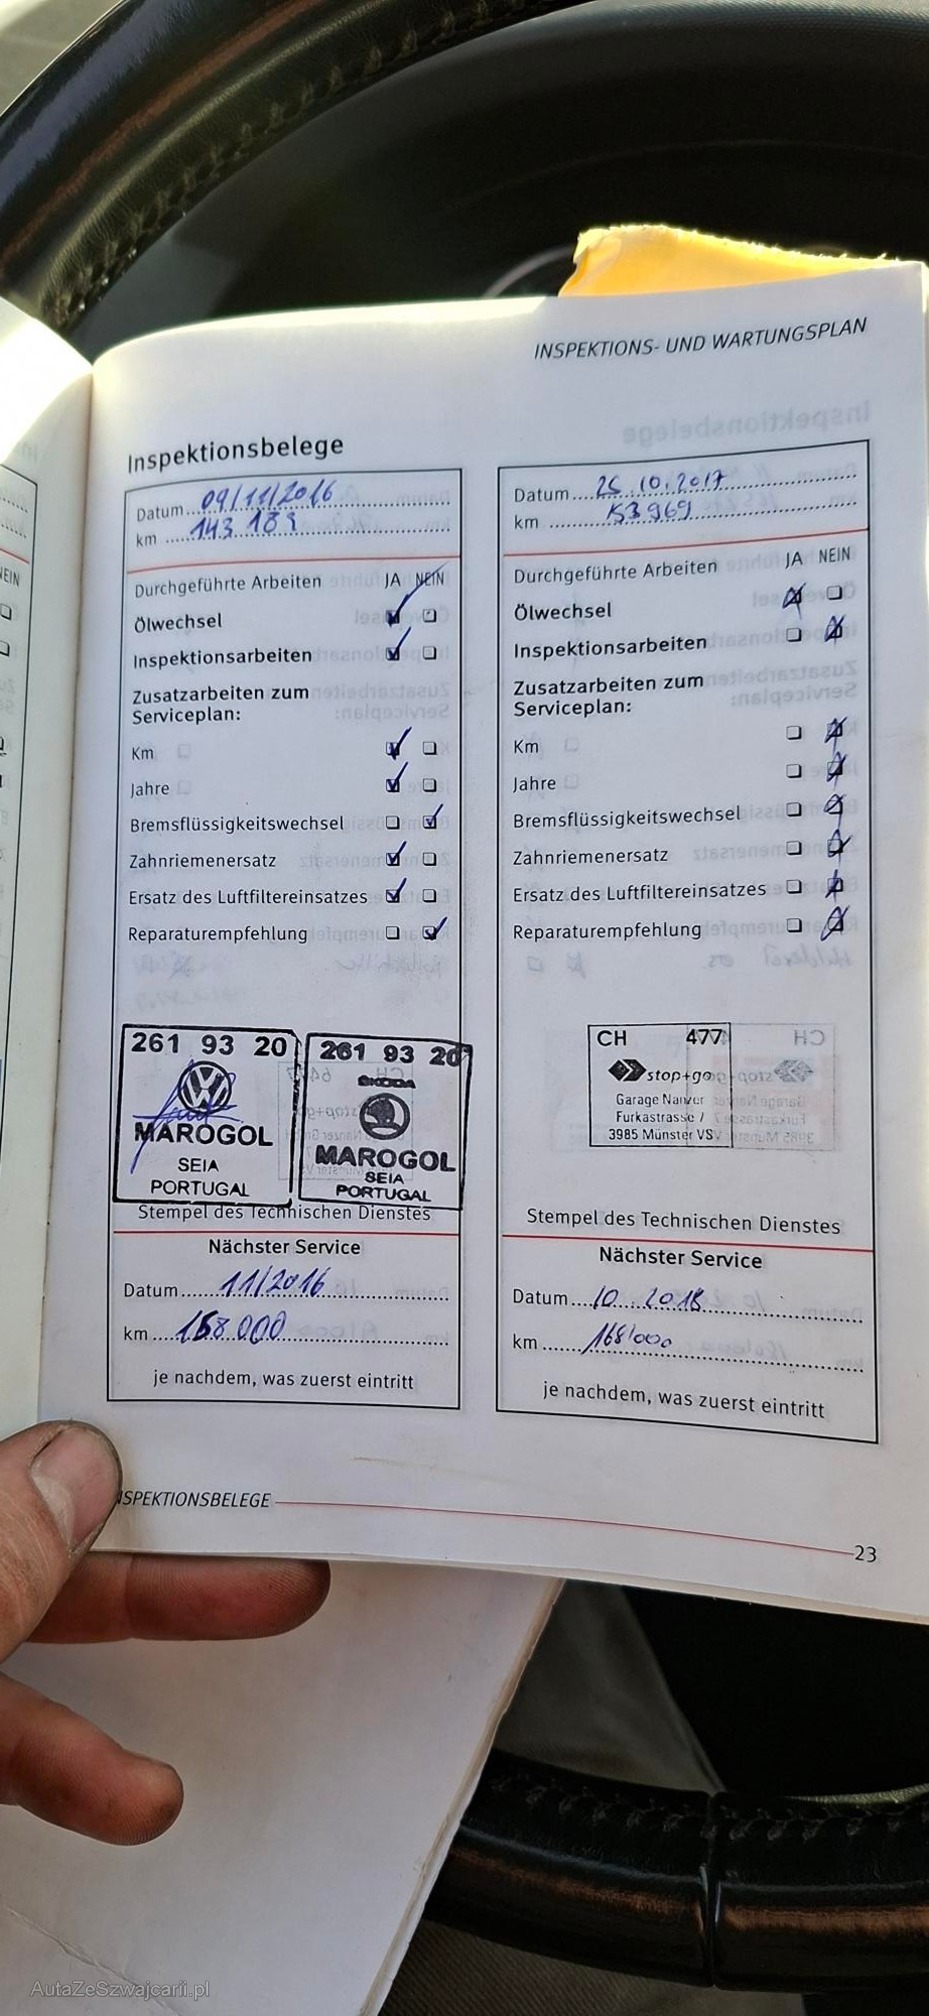 INSPEKTIONS- UND WARTUNGSPLAN
Inspektionsbelege
Datum 09/11/2016
km 143 189
Durchgeführte Arbeiten JA NEIN
Ölwechsel
Inspektionsarbeiten
Zusatzarbeiten zum
Serviceplan:
Km
Jahre
Bremsflüssigkeitswechsel
Zahnriemenersatz
Ersatz des Luftfiltereinsatzes
Reparaturempfehlung
261 93 20
MAROGOL
SEIA
PORTUGAL
261 93 20
SKODA
MAROGOL
SEIA
PORTUGAL
Stempel des Technischen Dienstes
Nächster Service
Datum 11/2016
km 158 000
je nachdem, was zuerst eintritt
Datum 25.10.2017
km 153969
Durchgeführte Arbeiten JA NEIN
Ölwechsel
Inspektionsarbeiten
Zusatzarbeiten zum
Serviceplan:
Km
Jahre
Bremsflüssigkeitswechsel
Zahnriemenersatz
Ersatz des Luftfiltereinsatzes
Reparaturempfehlung
CH 477
stop+go
Garage Nanzer
Furkastrasse 7
3985 Münster VS
Stempel des Technischen Dienstes
Nächster Service
Datum 10.2018
km 168'000
je nachdem, was zuerst eintritt
NSPEKTIONSBELEGE
23
AutaZeSzwajcarii.pl